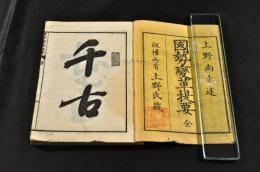 上野尚志述
國勢變革提要 全
版權所有 上野氏藏
千古